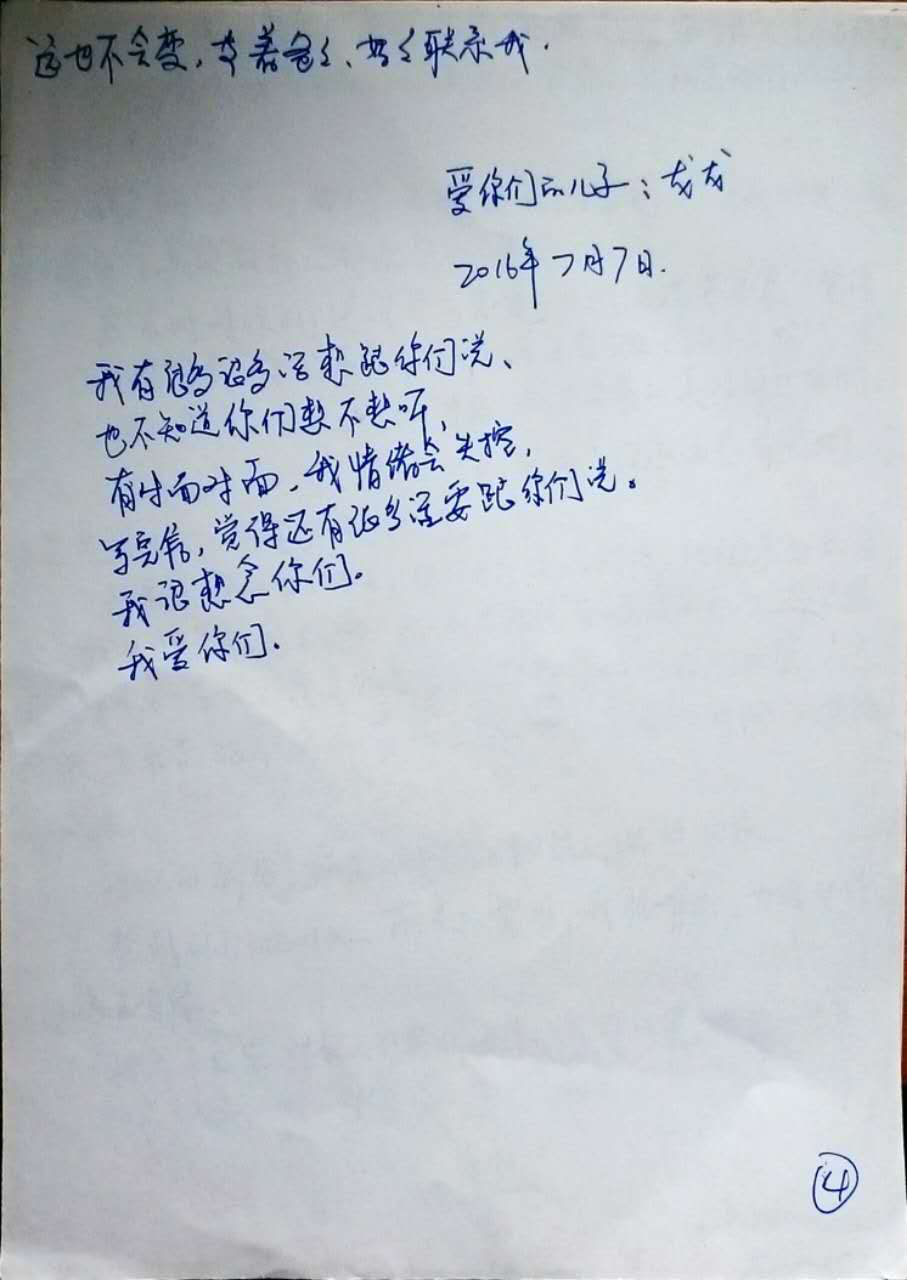 这也不会变，幸若爸爸、妈妈联系我.
爱你们的儿子：戈戈
2016年7月7日.
我有很多很多话想跟你们说、
也不知道你们想不想听,
有时面对面、我情绪会失控,
写完信, 觉得还有很多话要跟你们说。
我很想念你们.
我爱你们.
④